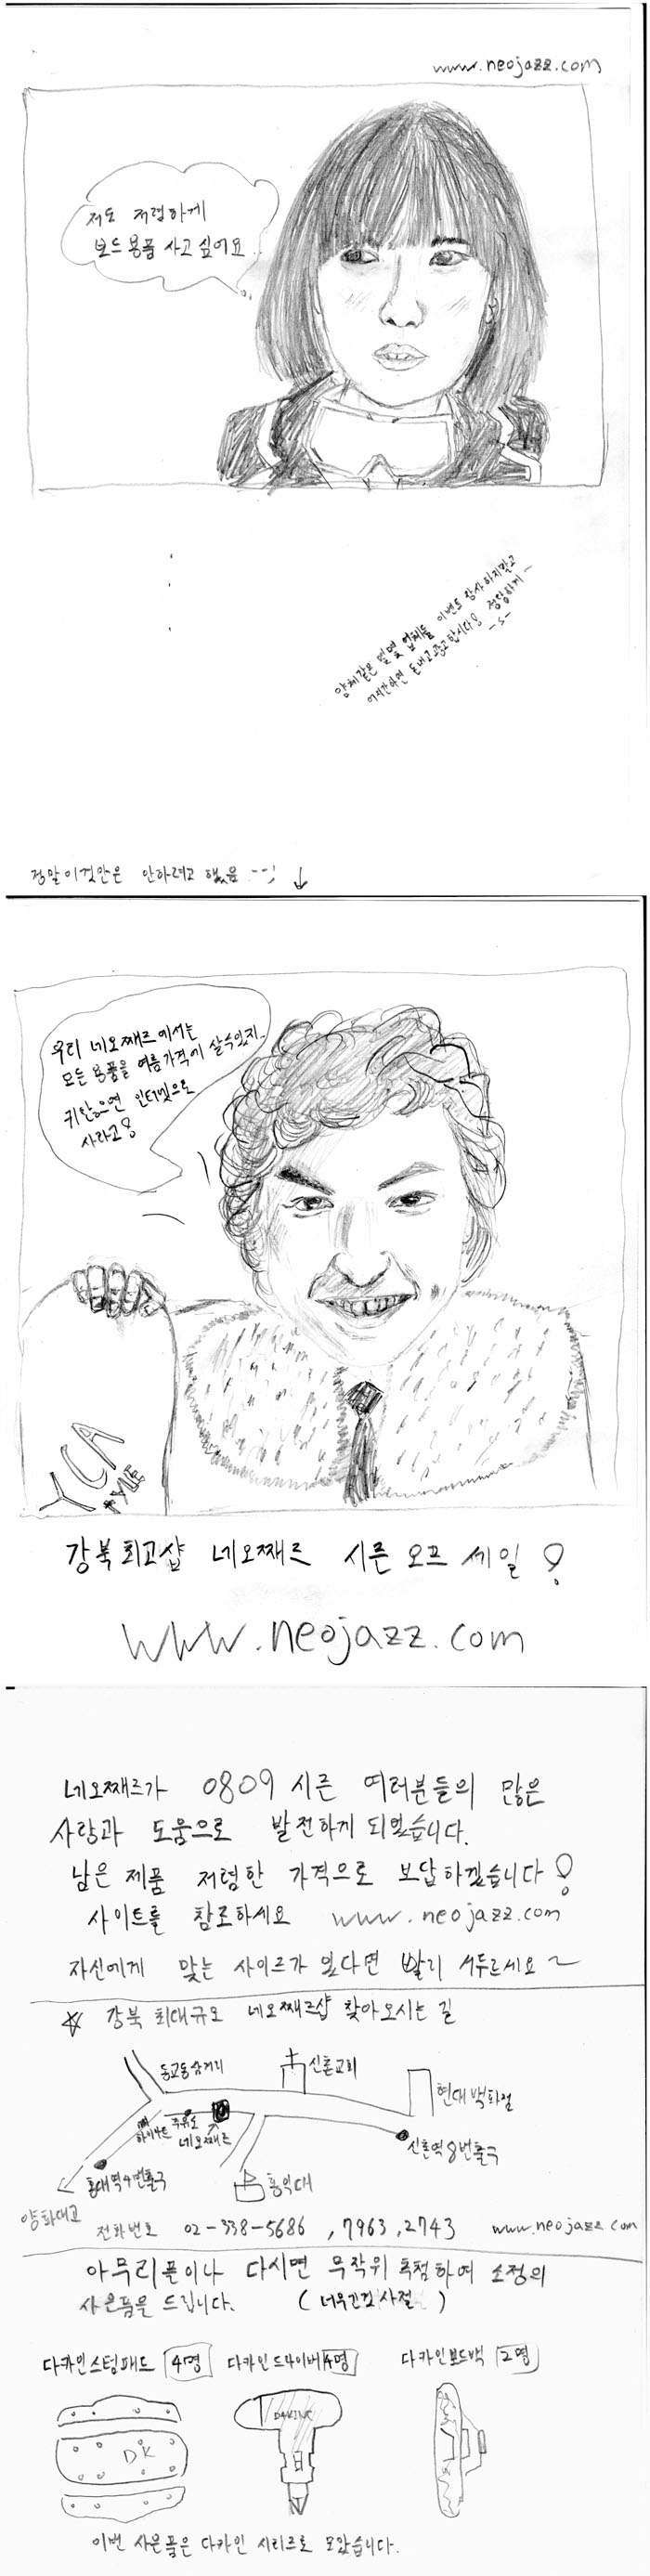 www.neojazz.com
저도 저렴하게
보드용품 사고 싶어요..
양체같은 몇몇 업체들 이벤트 행사하지말고
어지간하면 돈내고 광고합시다! 정당하게~
-s-
정말이것만은 안하려고 했음 --; ↓
우리 네오째즈에서는
모든 용품을 여름가격에 살수있지..
귀찮으면 인터넷으로
사라고!
YCA
STYLE
강북최고샵 네오째즈 시즌 오프 세일!
www.neojazz.com
네오째즈가 0809 시즌 여러분들의 많은
사랑과 도움으로 발전하게 되었습니다.
남은 제품 저렴한 가격으로 보답하겠습니다!
사이트를 참조하세요 www.neojazz.com
자신에게 맞는 사이즈가 있다면 빨리 서두르세요~
☆ 강북 최대규모 네오째즈샵 찾아오시는 길
동교동삼거리
신촌교회
현대백화점
하이마트
주유소
네오째즈
신촌역 8번출구
홍대역 4번출구
홍익대
양화대교
전화번호 02-338-5686 , 7963 , 2743 www.neojazz.com
아무리플이나 다시면 무작위 추첨하여 소정의
사은품을 드립니다. (너무긴건 사절)
다카인스텀패드 4명 다카인드라이버 4명 다카인보드백 2명
DK
DAKINE
이번 사은품은 다카인 시리즈로 모았습니다.